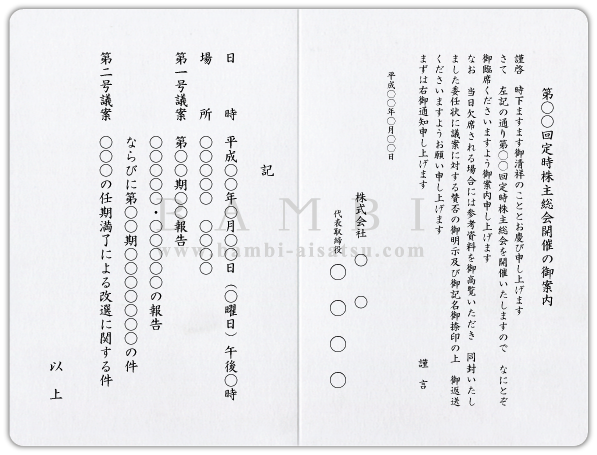 第〇〇回定時株主総会開催の御案内
謹啓　時下ますます御清祥のこととお慶び申し上げます
さて　左記の通り第〇〇回定時株主総会を開催いたしますので　なにとぞ
御臨席くださいますよう御案内申し上げます
なお　当日欠席される場合には参考資料を御高覧いただき　同封いたし
ました委任状に議案に対する賛否の御明示及び御記名御捺印の上　御返送
くださいますようお願い申し上げます
まずは右御通知申し上げます
謹言
平成〇〇年〇月〇〇日
株式会社　〇　〇
代表取締役　〇　〇　〇　〇
記
日　時　平成〇〇年〇月〇〇日（〇曜日）午後〇時
場　所　〇〇〇〇〇　〇〇〇〇
第一号議案　第〇〇期〇〇報告
〇〇〇〇〇・〇〇〇〇〇の報告
ならびに第〇〇期〇〇〇〇〇〇の件
第二号議案　〇〇〇の任期満了による改選に関する件
以上
BAMBI
www.bambi-aisatsu.com